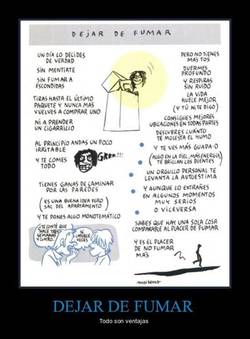 DEJAR DE FUMAR
UN DÍA LO DECIDES
DE VERDAD
SIN MENTIRTE
SIN FUMAR A
ESCONDIDAS
TIRAS HASTA EL ÚLTIMO
PAQUETE Y NUNCA MAS
VUELVES A COMPRAR UNO
NI A PRENDER
UN CIGARRILLO
AL PRINCIPIO ANDAS UN POCO
IRRITABLE
GRRR!!!
Y TE COMES
TODO
TIENES GANAS DE CAMINAR
POR LAS PAREDES
(ES UNA BUENA IDEA PERO
SAL DEL APARTAMENTO)
Y TE PONES ALGO MONOTEMÁTICO
PERO YA NO TIENES
MAS TOS
DUERMES
PROFUNDO
Y RESPIRAS
SIN RUIDO
LA VIDA
HUELE MEJOR
(Y TÚ NI TE DIGO)
CONSIGUES MEJORES
UBICACIONES EN TODAS PARTES
DESCUBRES CUÁNTO
TE MOLESTA EL HUMO
Y TE VES MÁS GUAPA-O
(ALGO EN LA PIEL, MAS ENERGÍA)
TE BRILLAN LOS DIENTES
UN ORGULLO PERSONAL TE
LEVANTA LA AUTOESTIMA
Y AUNQUE LO EXTRAÑES
EN ALGUNOS MOMENTOS
MUY SERIOS
O VICEVERSA
SABES QUE HAY UNA SOLA COSA
COMPARABLE AL PLACER DE FUMAR
Y ES EL PLACER
DE NO FUMAR
MAS
DEJAR DE FUMAR
Todo son ventajas